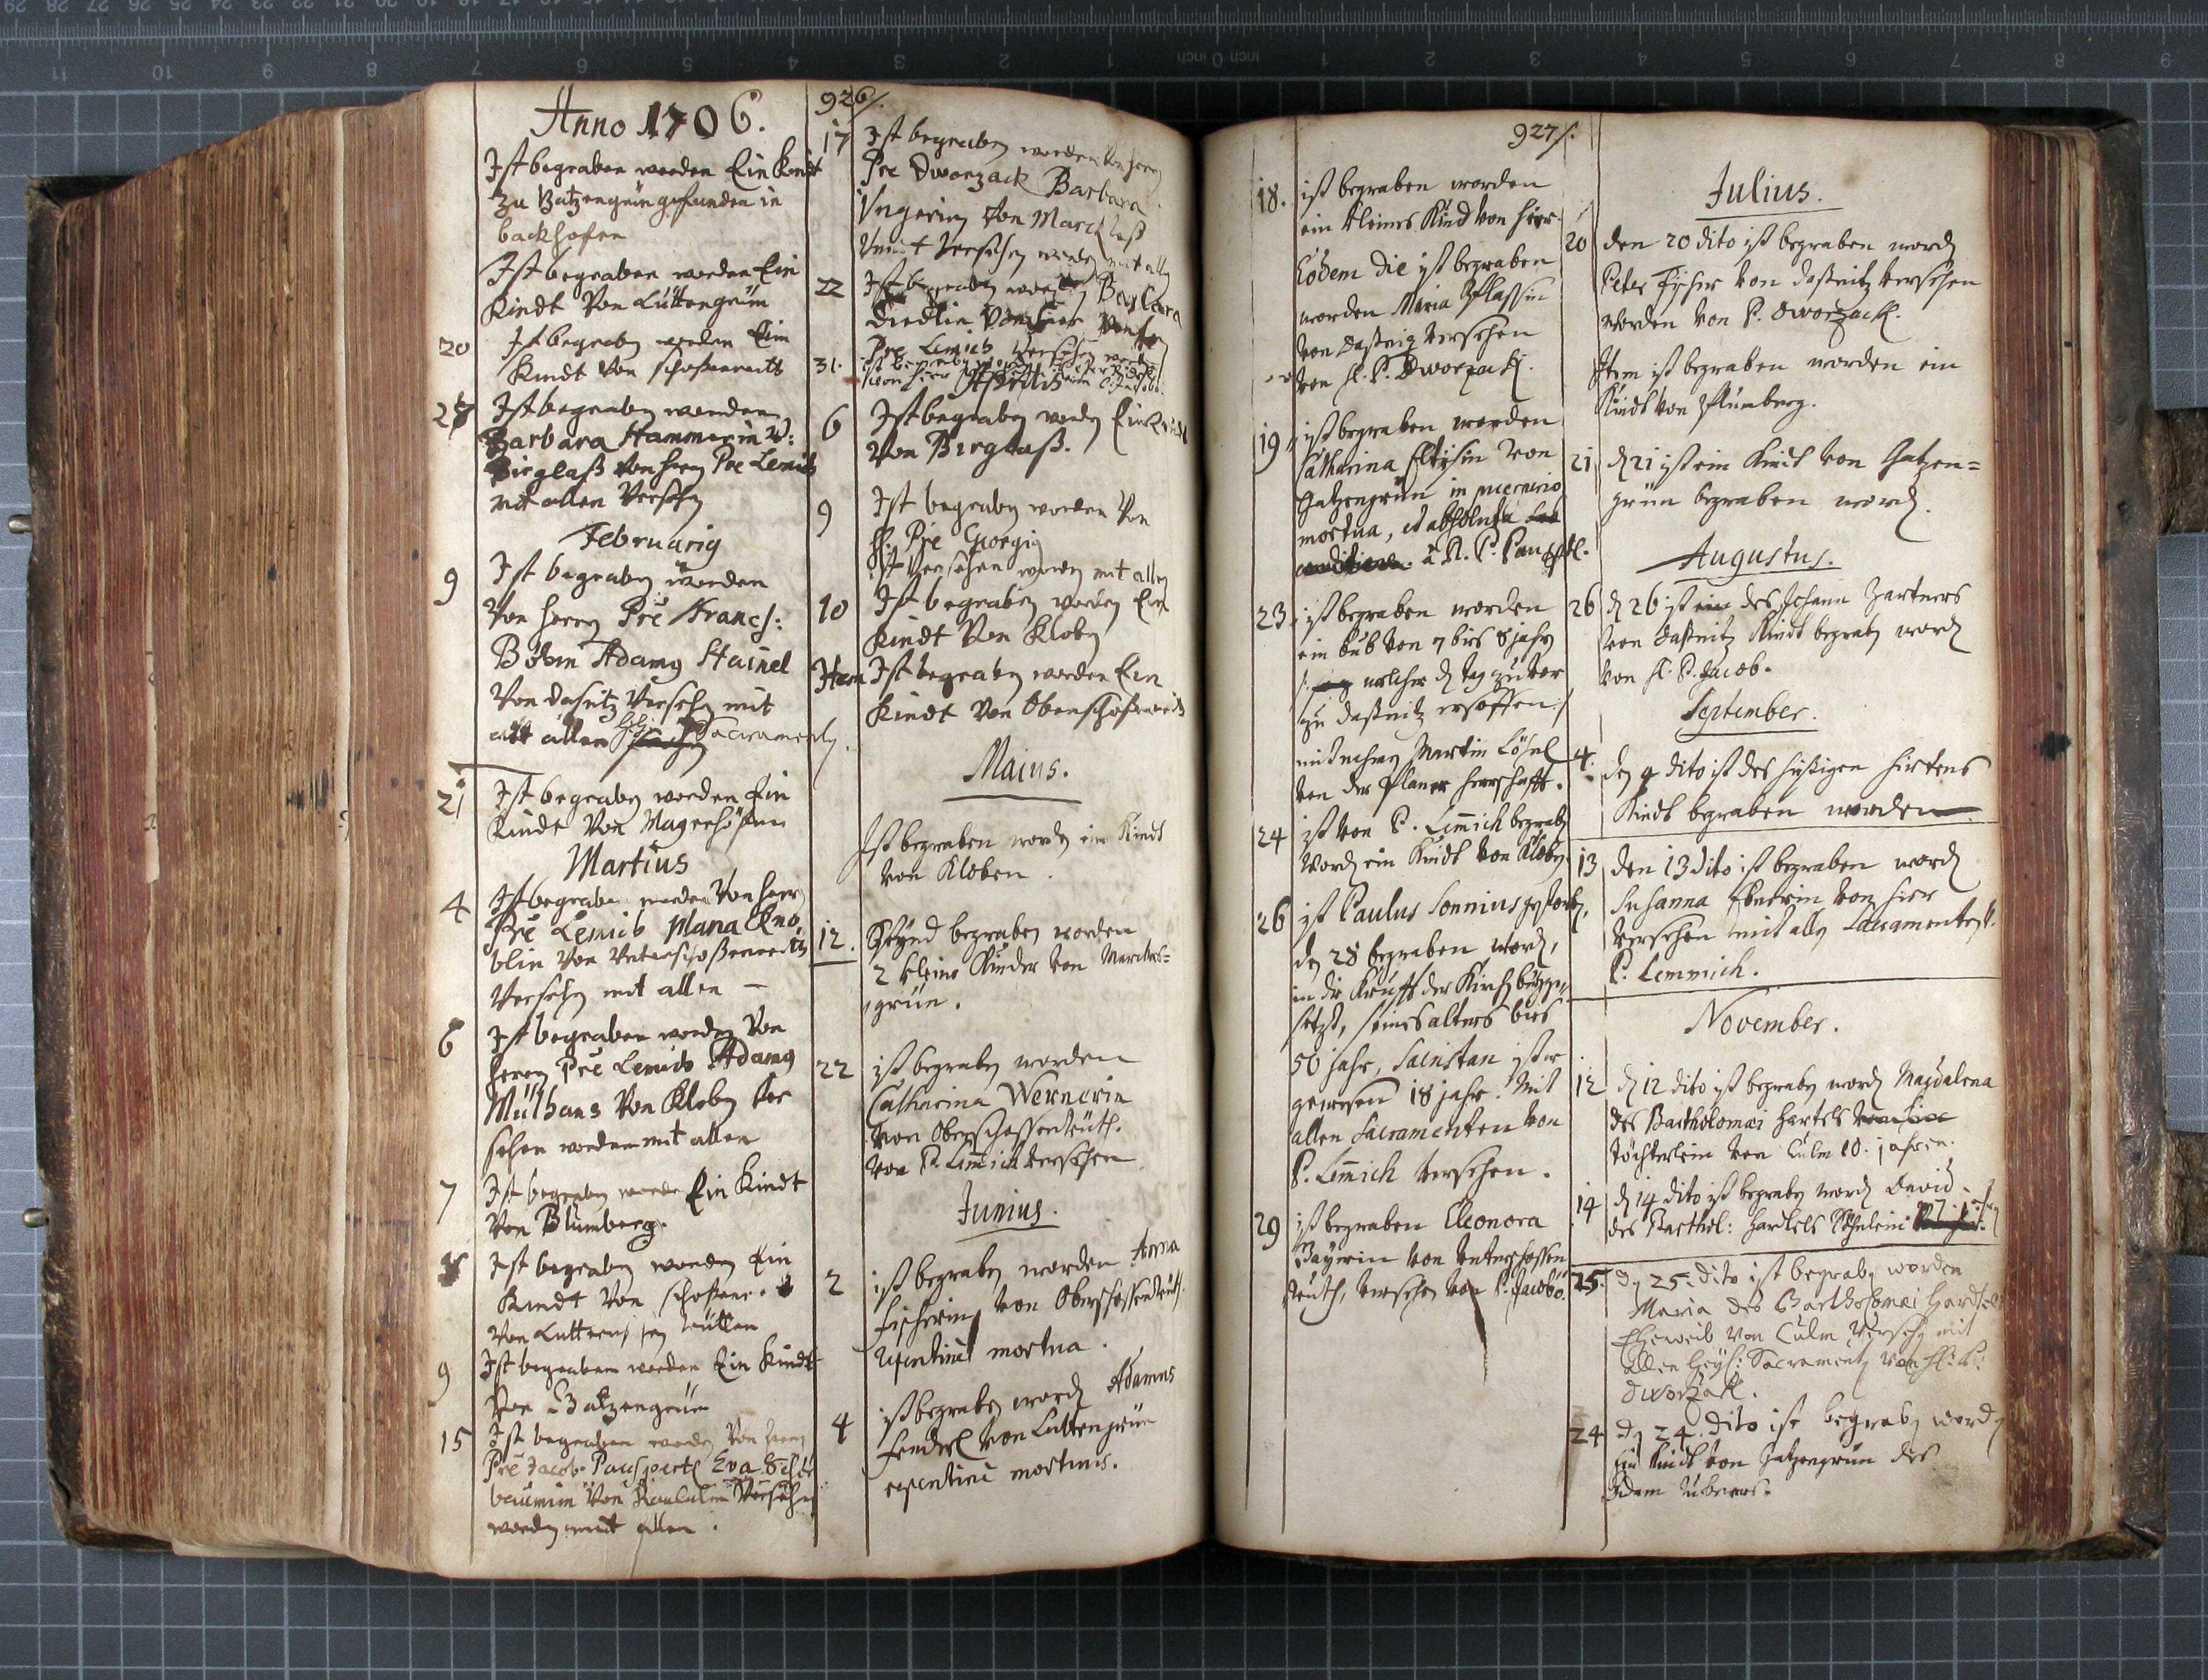 Anno 1706.
Ist begraben worden Ein Kindt
zu Katzengrün gefunden in
backhofen
Ist begraben worden Ein
Kindt Von Lüttengrün
20 Ist begraben worden Ein
Kindt Von schoßenreith
27 Ist begraben worden
Barbara Hammerin V:
Birglaß Von herrn Pre Lemich
mit allen Versehen
Februarij
9 Ist begraben worden
Von herrn Pre Francs:
Böhm Adamus Stainel
Von dasnitz Versehen mit
allen Sacramenten
21 Ist begraben worden Ein
Kindt Von Mayerhöfen
Martius
4 Ist begraben worden Von herrn
Pre Lemich Maria Kno
blin Von Unterschoßenreith
Versehen mit allen
6 Ist begraben worden Von
herrn Pre Lemich Adamus
Mülhans Von Kloben Ver
sehen worden mit allen
7 Ist begraben worden Ein Kindt
Von Blumberg.
8 Ist begraben worden Ein
Kindt Von schoßenr.
Von
9 Ist begraben worden Ein Kindt
Von Katzengrün
15 Ist begraben worden Von herrn
Pre Jacob Pauspertl Eva
baumin Von Versehen
worden mit allen.
926/.
17 Ist begraben worden Von herrn
Pre Dworzack Barbara
Ungerin Von
Versehen worden mit allen
22 Ist begraben worden Barbara
Von hier Von
Pre Lemich Versehen worden
31. ist begraben worden
von hier
Aprilis
6 Ist begraben worden Ein Kindt
Von Birglaß.
9 Ist begraben worden Von
H. Pre Georgio
Ist Versehen worden mit allen
10 Ist begraben worden Ein
Kindt Von Kloben
Item Ist begraben worden Ein
Kindt Von Oberschoßenreith
Maius.
Ist begraben worden ein Kindt
von Kloben.
12. Seynd begraben worden
2 kleine Kinder von Marckus=
grün.
22 ist begraben worden
Catharina Wernerin
von Oberschossenreüth.
von P. Lem̄ich versehen
Junius.
2 ist begraben worden Anna
Fischerin von Oberschossenreüth.
repentine mortua.
4 ist begraben word. Adamus
Fenderl von Luttengrün
repentine mortuus.
927/.
18. ist begraben worden
ein kleines Kind von hier.
Eodem die ist begraben
worden Maria
von Daßnitz versehen
von H. P. Dworzack.
19. ist begraben worden
Catharina von
Katzengrün in puerperio
mortua, et absoluta
à R. P. Pauspertl.
23. ist begraben worden
ein bub von 7 bis 8 jahren
welcher den tag zuvor
zu daßnitz ersoffen,
mit nahmen Martin Lösel
von der Planer herrschafft.
24 ist von P. Lem̄ich begraben
worden ein Kindt von Kloben
26 ist Paulus Sonnius gestorben,
den 28 begraben worden,
in die Krufft der Kirchen beyge,
setzt, seines alters bis
50 jahr, Sacristan ist er
gewesen 18 jahr. Mit
allen Sacramenten von
P. Lem̄ich versehen.
29 ist begraben Eleonora
Bayerin von Unterschossen
reüth, versehen von P. Jacobo.
Julius.
20 den 20 dito ist begraben worden
Peter Fischer von daßnitz versehen
worden von P. dworzack.
Item ist begraben worden ein
Kindt von Pflumberg.
21 d 21 ist ein Kindt von Katzen=
grün begraben worden.
Augustus.
26 d 26 ist des Johann Zartners
von daßnitz Kindt begraben worden
von H. P. Jacob.
September.
4. den 4 dito ist des hießigen hirtens
Kindt begraben worden
13 den 13 dito ist begraben worden
Susanna Ebnerin von hier
versehen mit allen Sacramenten
P. Lemmich.
November.
12 d 12 dito ist begraben worden Magdalena
des Bartholomäi Hartels
töchterlein von Culm 10. jahren.
14 d 14 dito ist begraben worden David
des Barthol: Hartels Söhnlein
25. den 25. dito ist begraben worden
Maria des Bartholomæi Hardtels
Eheweib von Culm Versehen mit
allen heyl: Sacramenten von H: P:
dworzack.
24 den 24. dito ist begraben worden
ein Kindt von Katzengrün des
Adam